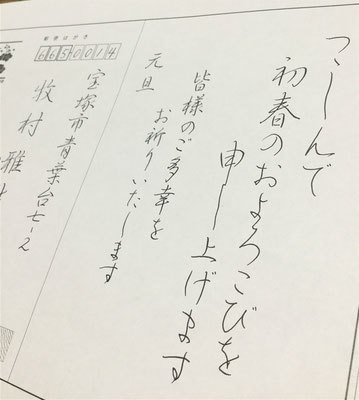 つつしんで
初春のおよろこびを
申し上げます
皆様のご多幸を
お祈りいたします
元旦
郵便はがき
6650014
宝塚市青葉台七ー二
牧村雅